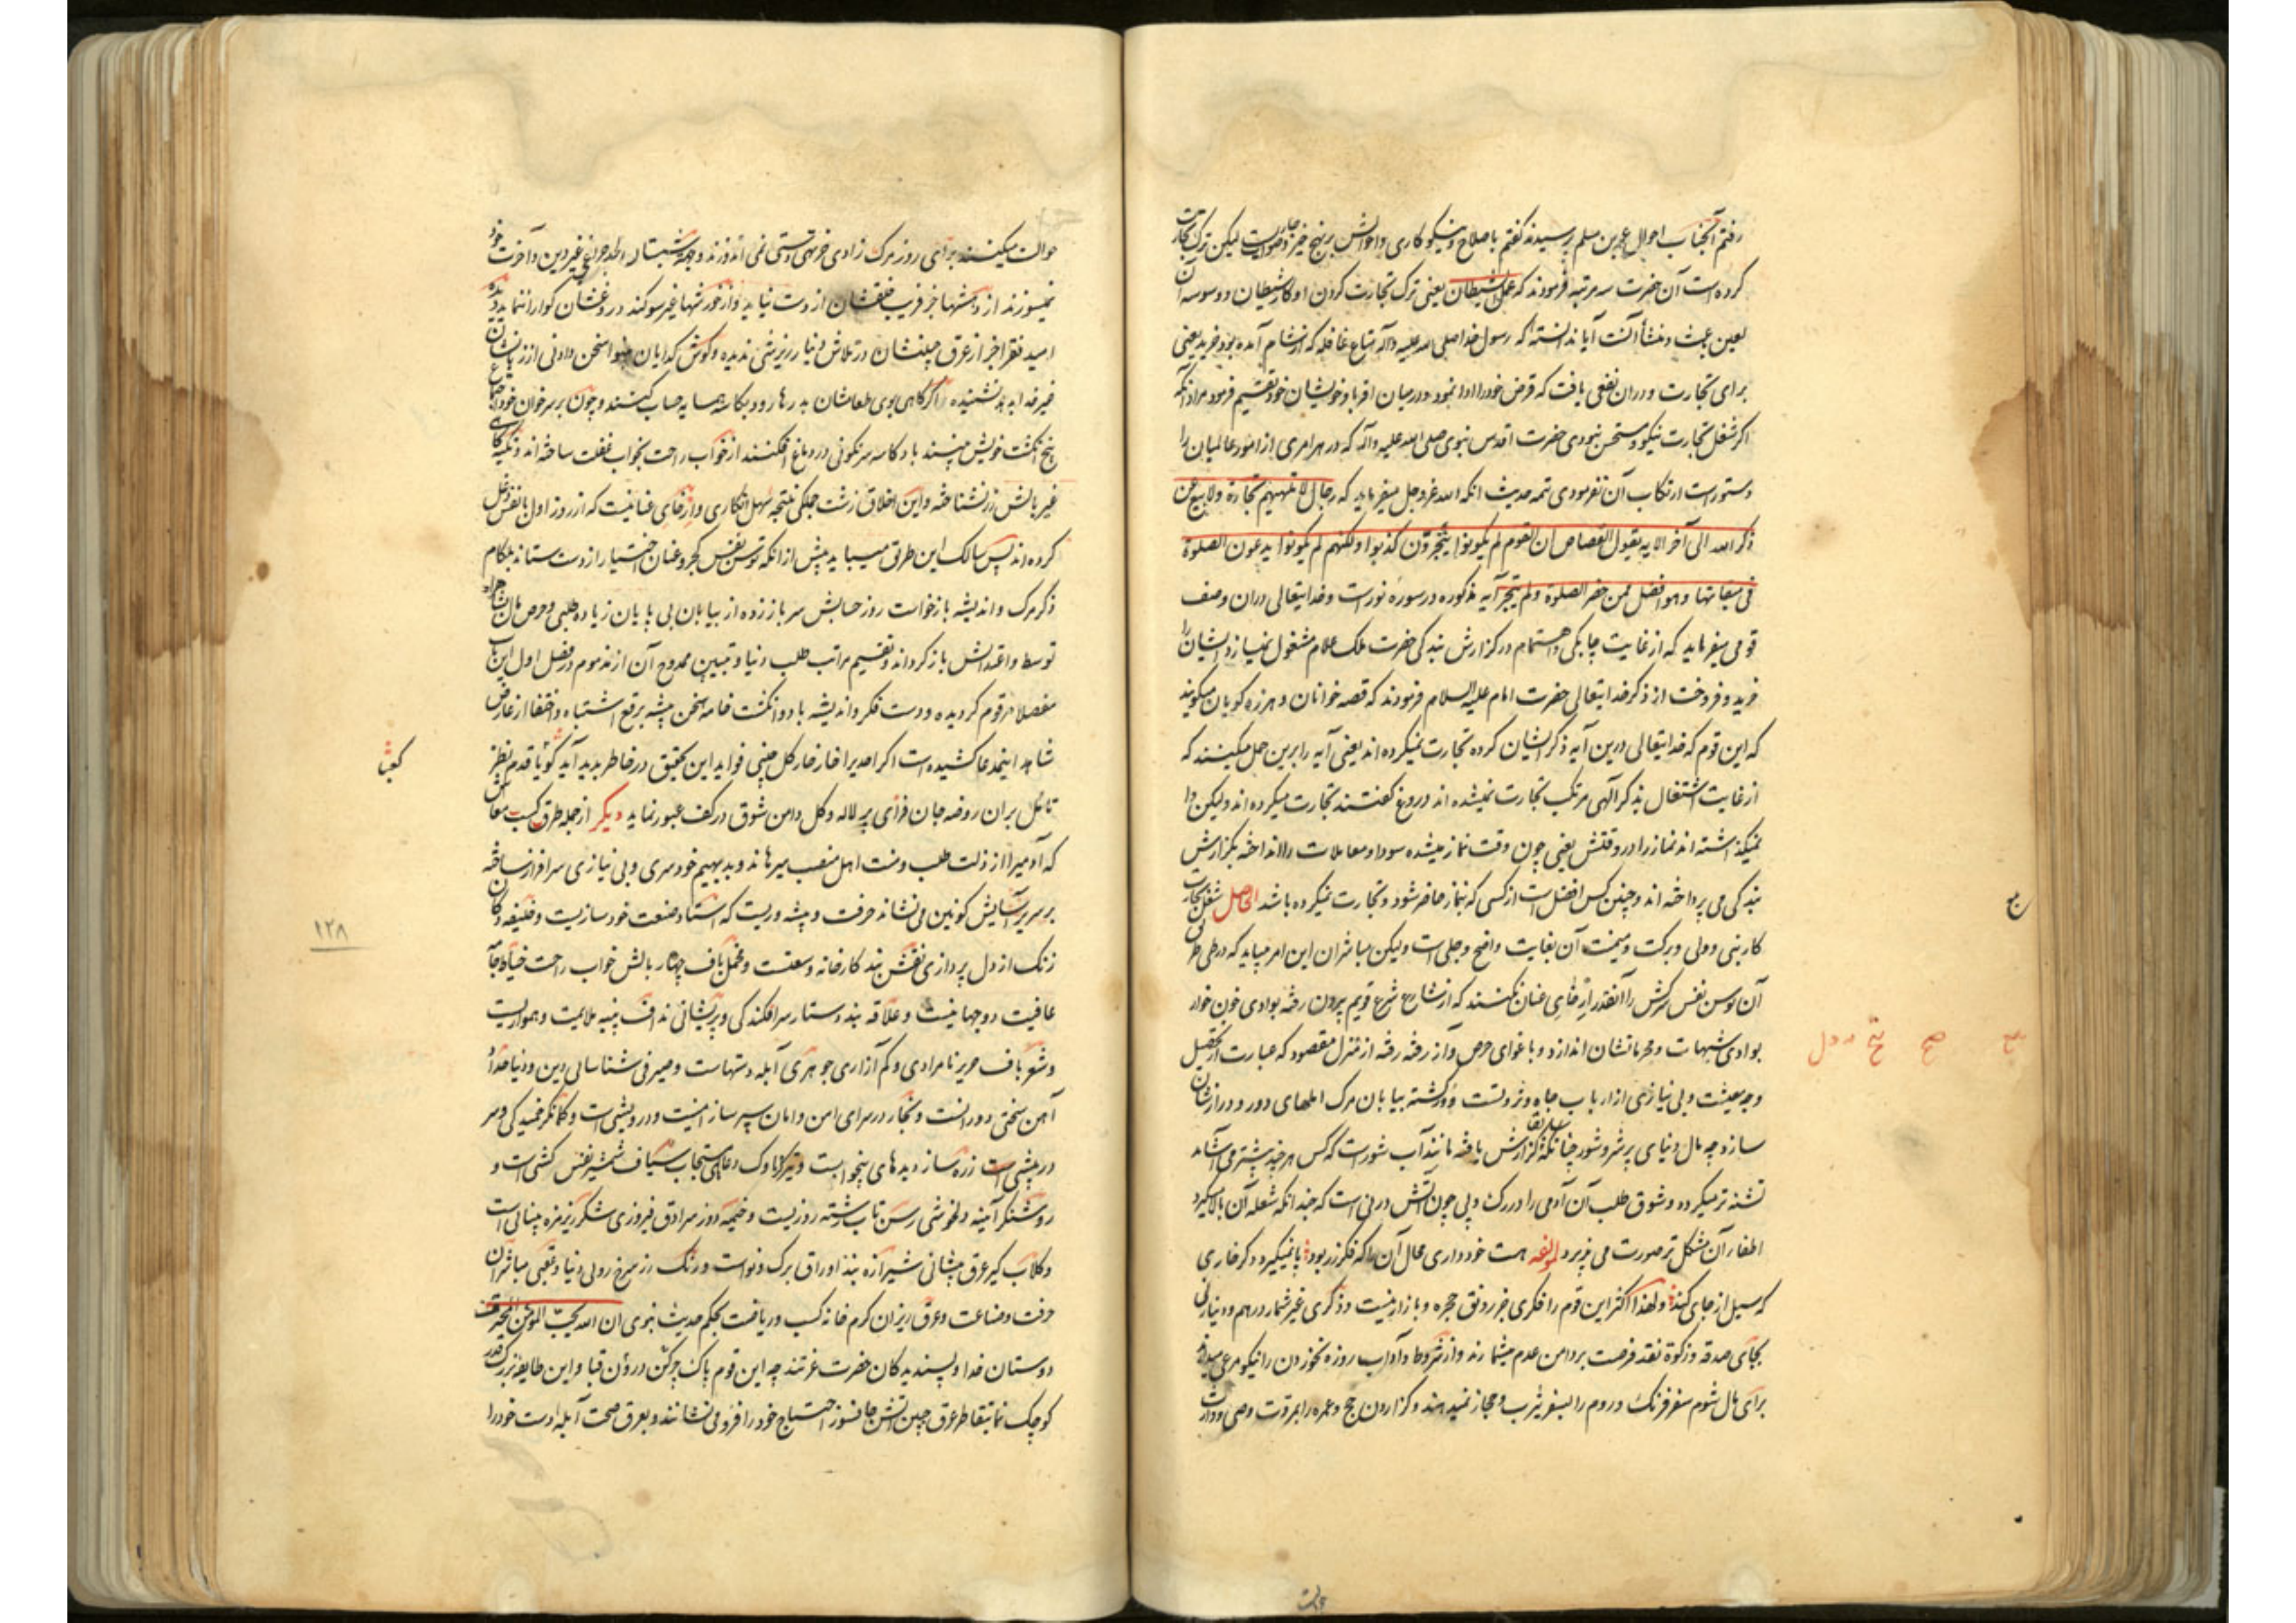 رفتم آنجناب احوال عمر بن مسلم پرسیدند گفتم باصلاح و نیکوکاری و احوالش برنهج خیر و صوابست لیکن ترک تجارت
کرده است آن حضرت سه مرتبه فرمودند که عمل الشیطان یعنی ترک تجارت کردن او کار شیطان و وسوسه آن
لعین باعث و منشأ آنست آیا ندانسته که رسول خدا صلی الله علیه و آله متاع قافله که از شام آمده بود خرید یعنی
برای تجارت و دران نفعی یافت که قرض خود را ادا نمود و در میان اقربا و خویشان خود تقسیم فرمود مراد آنکه
اگر شغل تجارت نیکو و مستحسن نبودی حضرت اقدس نبوی صلی الله علیه و آله که در هر امری از امور عالمیان را
دستورست ارتکاب آن نفرمودی تتمه حدیث آنکه الله عزوجل میفرماید که رجال لا تلهیهم تجارة ولا بیع عن
ذکر الله الی آخر الایه یقول القصاص ان القوم لم یکونوا یتجرون کذبوا ولکنهم لم یکونوا یدعون الصلوة
فی میقاتها وهو افضل ممن حضر الصلوة ولم یتجر آیه مذکوره در سوره نورست و خدایتعالی دران وصف
قومی میفرماید که از غایت چابکی و اهتمام در گزارش بندگی حضرت ملک علام مشغول نمیسازد ایشان را
خرید و فروخت از ذکر خدایتعالی حضرت امام علیه السلام فرمودند که قصه خوانان و هرزه گویان میگویند
که این قوم که خدایتعالی درین آیه ذکر ایشان کرده تجارت نمیکرده اند یعنی آیه را برین حمل میکنند که
از غایت اشتغال بذکر الهی مرتکب تجارت نمیشده اند دروغ گفتند تجارت میکرده اند ولیکن وا
نمیگذاشته اند نماز را در وقتش یعنی چون وقت نماز میشده سودا و معاملات را انداخته بگزارش
بندگی می پرداخته اند و چنین کس افضل است از کسی که بنماز حاضر شود و تجارت نمیکرده باشد الحاصل شغل تجارت
و برکت و میمنت آن بغایت واضح و جلی است ولیکن مباشران این امر میباید که در طی طرق
آن توسن نفس سرکش را آنقدر ارخای عنان نکنند که از شارع شرع قویم بیرون رفته بوادی خون خوار
بوادی شبهات و محرماتشان اندازد و باغوای حرص و آز رفته رفته از منزل مقصود که عبارت از تحصیل
وجه معیشت و بی نیازی از ارباب جاه و ثروتست دور گشته بیابان مرگ املهای دور و درازشان
سازد چه مال دنیای پر شر و شور چنانکه سابقا گزارش یافته مانند آب شورست که کس هر چند بیشتر می آشامد
تشنه تر میگردد و شوق طلب آن آدمی را در رگ و پی چون آتش در نی است که چندانکه شعله آن بالا میگیرد
اطفاء آن مشکل تر صورت می پذیرد لمؤلفه هست خودداری محال آن را که فکر زر بود پا نمیگیرد دگر خاری
که سیل از جای کند ولهذا اکثر این قوم را فکری جز رونق حجره و بازار نیست و ذکری غیر شمار درهم و دینار نی
بجای صدقه و زکوة نقد فرصت بر دامن عدم میشمارند و از شروط و آداب روزه نخوردن را نیکو مرعی میدارند
برای مال شوم سفر فرنگ و روم را بسفر یثرب و حجاز نمیدهند و گزاردن حج و عمره را بمروت وصی و وارث
حوالت میکنند برای روز مرگ زادی جز تهی دستی نمی اندوزند
نمیسوزند از
امید فقرا جز از عرق جبینشان در تلاش دنیا ریزشی ندیده و گوش گدایان
خبر خدا بدهد نشنیده اگر گاهی بوی طعامشان بدر ها رود بکاسه همسایه حساب کنند و چون بر سر خوان خود
پنج انگشت خویش بینند باد کاسه سرنگونی در دماغ افکنند از خواب راحت بخواب غفلت ساخته اند و تکیه گاهی
غیر بالش زر نشناخته و این اخلاق زشت جملگی نتیجه سهل انگاری و ارخای عنانیست که از روز اول با نفس دغل
کرده اند پس سالک این طریق میباید پیش از آنکه توسن نفس کجرو عنان اختیار از دست ستاند بلگام
ذکر مرگ و اندیشه بازخواست روز حسابش سر باز زده از بیابان بی پایان زیاده طلبی و حرص مال
توسط و اعتدالش باز گرداند و تقسیم مراتب طلب دنیا و تبیین ممدوح آن از مذموم در فصل اول این باب
مفصلا مرقوم گردیده و دست فکر و اندیشه با دو انگشت خامه سخن پیشه برقع اشتباه و اختفا از عارض
شاهد اینمدعا کشیده است اگر احدی را خار خار گل چینی فواید این تحقیق در خاطر پدید آید گو با قدم نظر
تامل بران روضه جان فزای پر لاله و گل دامن شوق در کف عبور نماید دیگر از جمله طرق کسب معاش
که آدمی را از ذلت طلب و منت اهل منصب میرهاند و بدیهیم خودسری و بی نیازی سرافراز ساخته
بر سریر آسایش کونین می نشاند حرفت و پیشه وریست که استاد صنعت خودسازیست و
زنگ از دل پردازی نقش بند کارخانه وسعتست و مخمل باف بالش خواب راحت خیاط جامه
عافیت دو جهانیست و علاقه بند دستار سرافکندگی و پریشانی نداف پنبه ملایمت و همواریست
و شعرباف حریر نامرادی و کم آزاری جوهری آبله دستهاست و صیرفی شناسای دین و دنیا حداد
آهن سختی دورانست و نجار درسرای امن و امان سپر ساز امنیت و درویشی است و کمانگر خمیدگی و سر
در پیشی است زره ساز دیدهای بیخوابست و تیرگر ناوک دعای مستجاب سیاف شمشیر نفس کشی است و
روشنگر آئینه دلخوشی رسن تاب رشته روزیست و خیمه دوز سرادق فیروزی شکر ریز
و گلاب گیر عرق پیشانی شیرازه بند اوراق برگ و نواست و رنگ رز سرخ روئی دنیا و عقبی مباشران
حرفت و صناعت و عرق ریزان گرم خانه کسب و دریافت بحکم حدیث نبوی ان الله یحب المؤمن المحترف
دوستان خدا و پسندیدگان حضرت عزتند چه این قوم پاک چرکن درون قبا و این طایفه بزرگ قدر
کوچک نما بتقاطر عرق جبین آتش جانسوز احتیاج خود را فرو می نشانند و بعرق صحت آبله دست خود را
۱۲۸